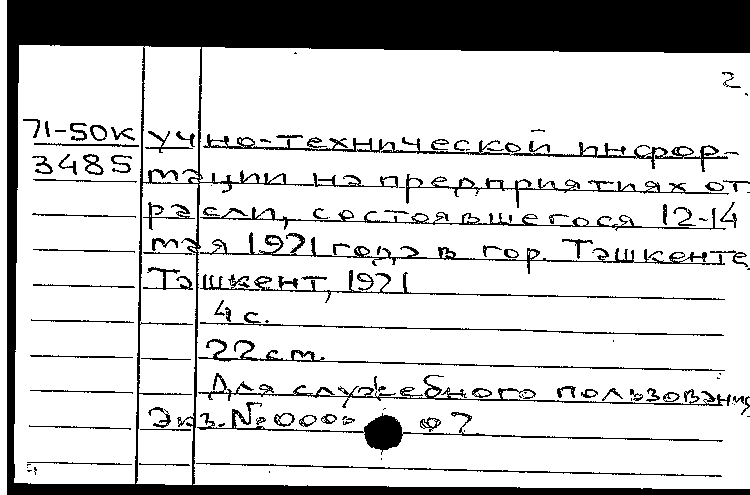 2.
71-50К учно-технической инфор-
3485 мации на предприятиях от
расли, состоявшегося 12-14
мая 1971 года в гор. Ташкенте
Ташкент, 1971
4 с.
22 см.
Для служебного пользования
Экз. №